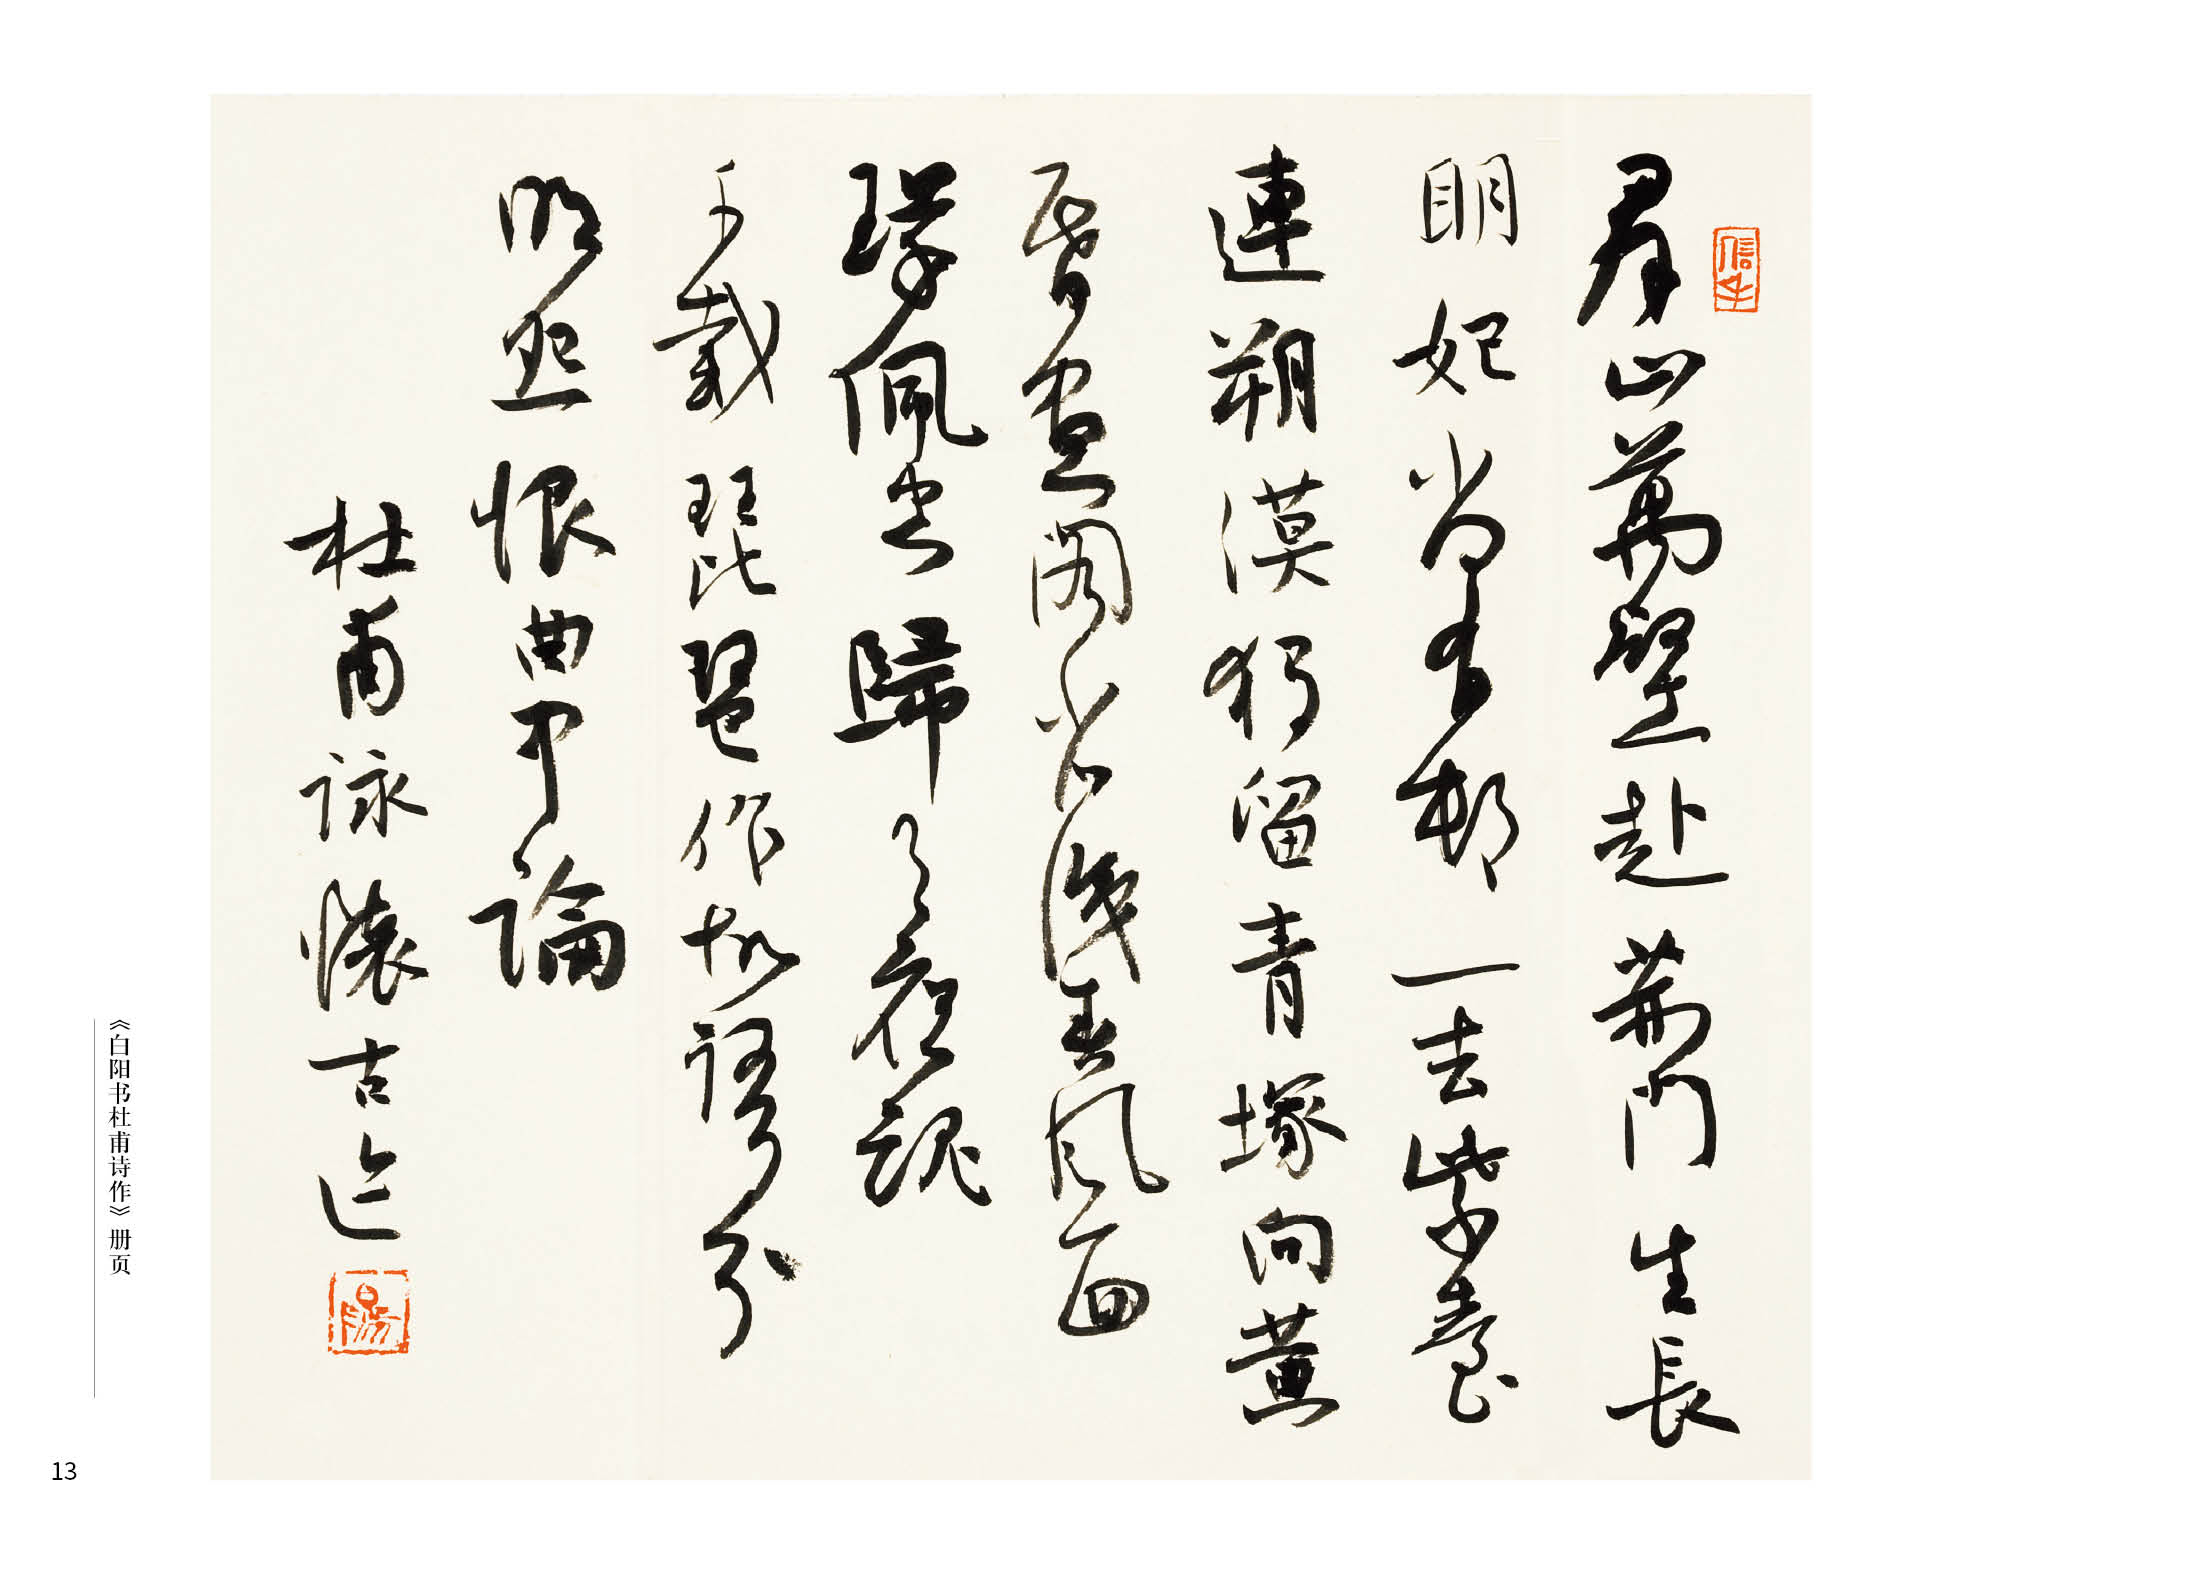 羣山萬壑赴荊門生長
眀妃尚有邨一去紫臺
連朔漠獨留青塚向黃
昏畫圖省識春風面
環佩空歸月夜魂
千載琵琶作胡語分
明怨恨曲中論
杜甫詠懷古迹
《白阳书杜甫诗作》册页
13